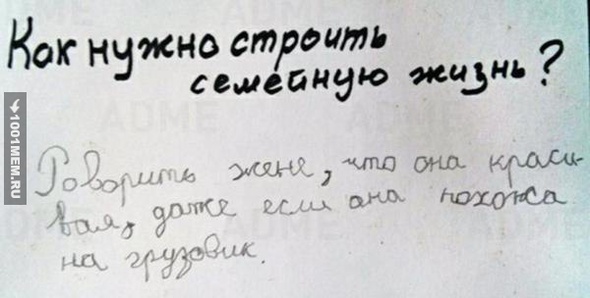 Как нужно строить
семейную жизнь?
Говорить жене, что она краси-
вая, даже если она похожа
на грузовик.
1001MEM.RU
ADME
ADME